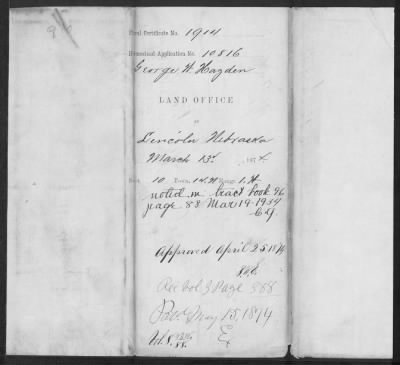 Final Certificate No. 1914
Homestead Application No. 10816
George W. Hayden
LAND OFFICE
AT
Lincoln Nebraska
March 13th, 1874.
Sect. 10 Town, 14 N Range, 1 W
noted in tract book 96
page 88 Mar 19-1934
Approved April 25 1874
Rec Vol 3 Page 868
Pat. May 15, 1874
Vol. 8.